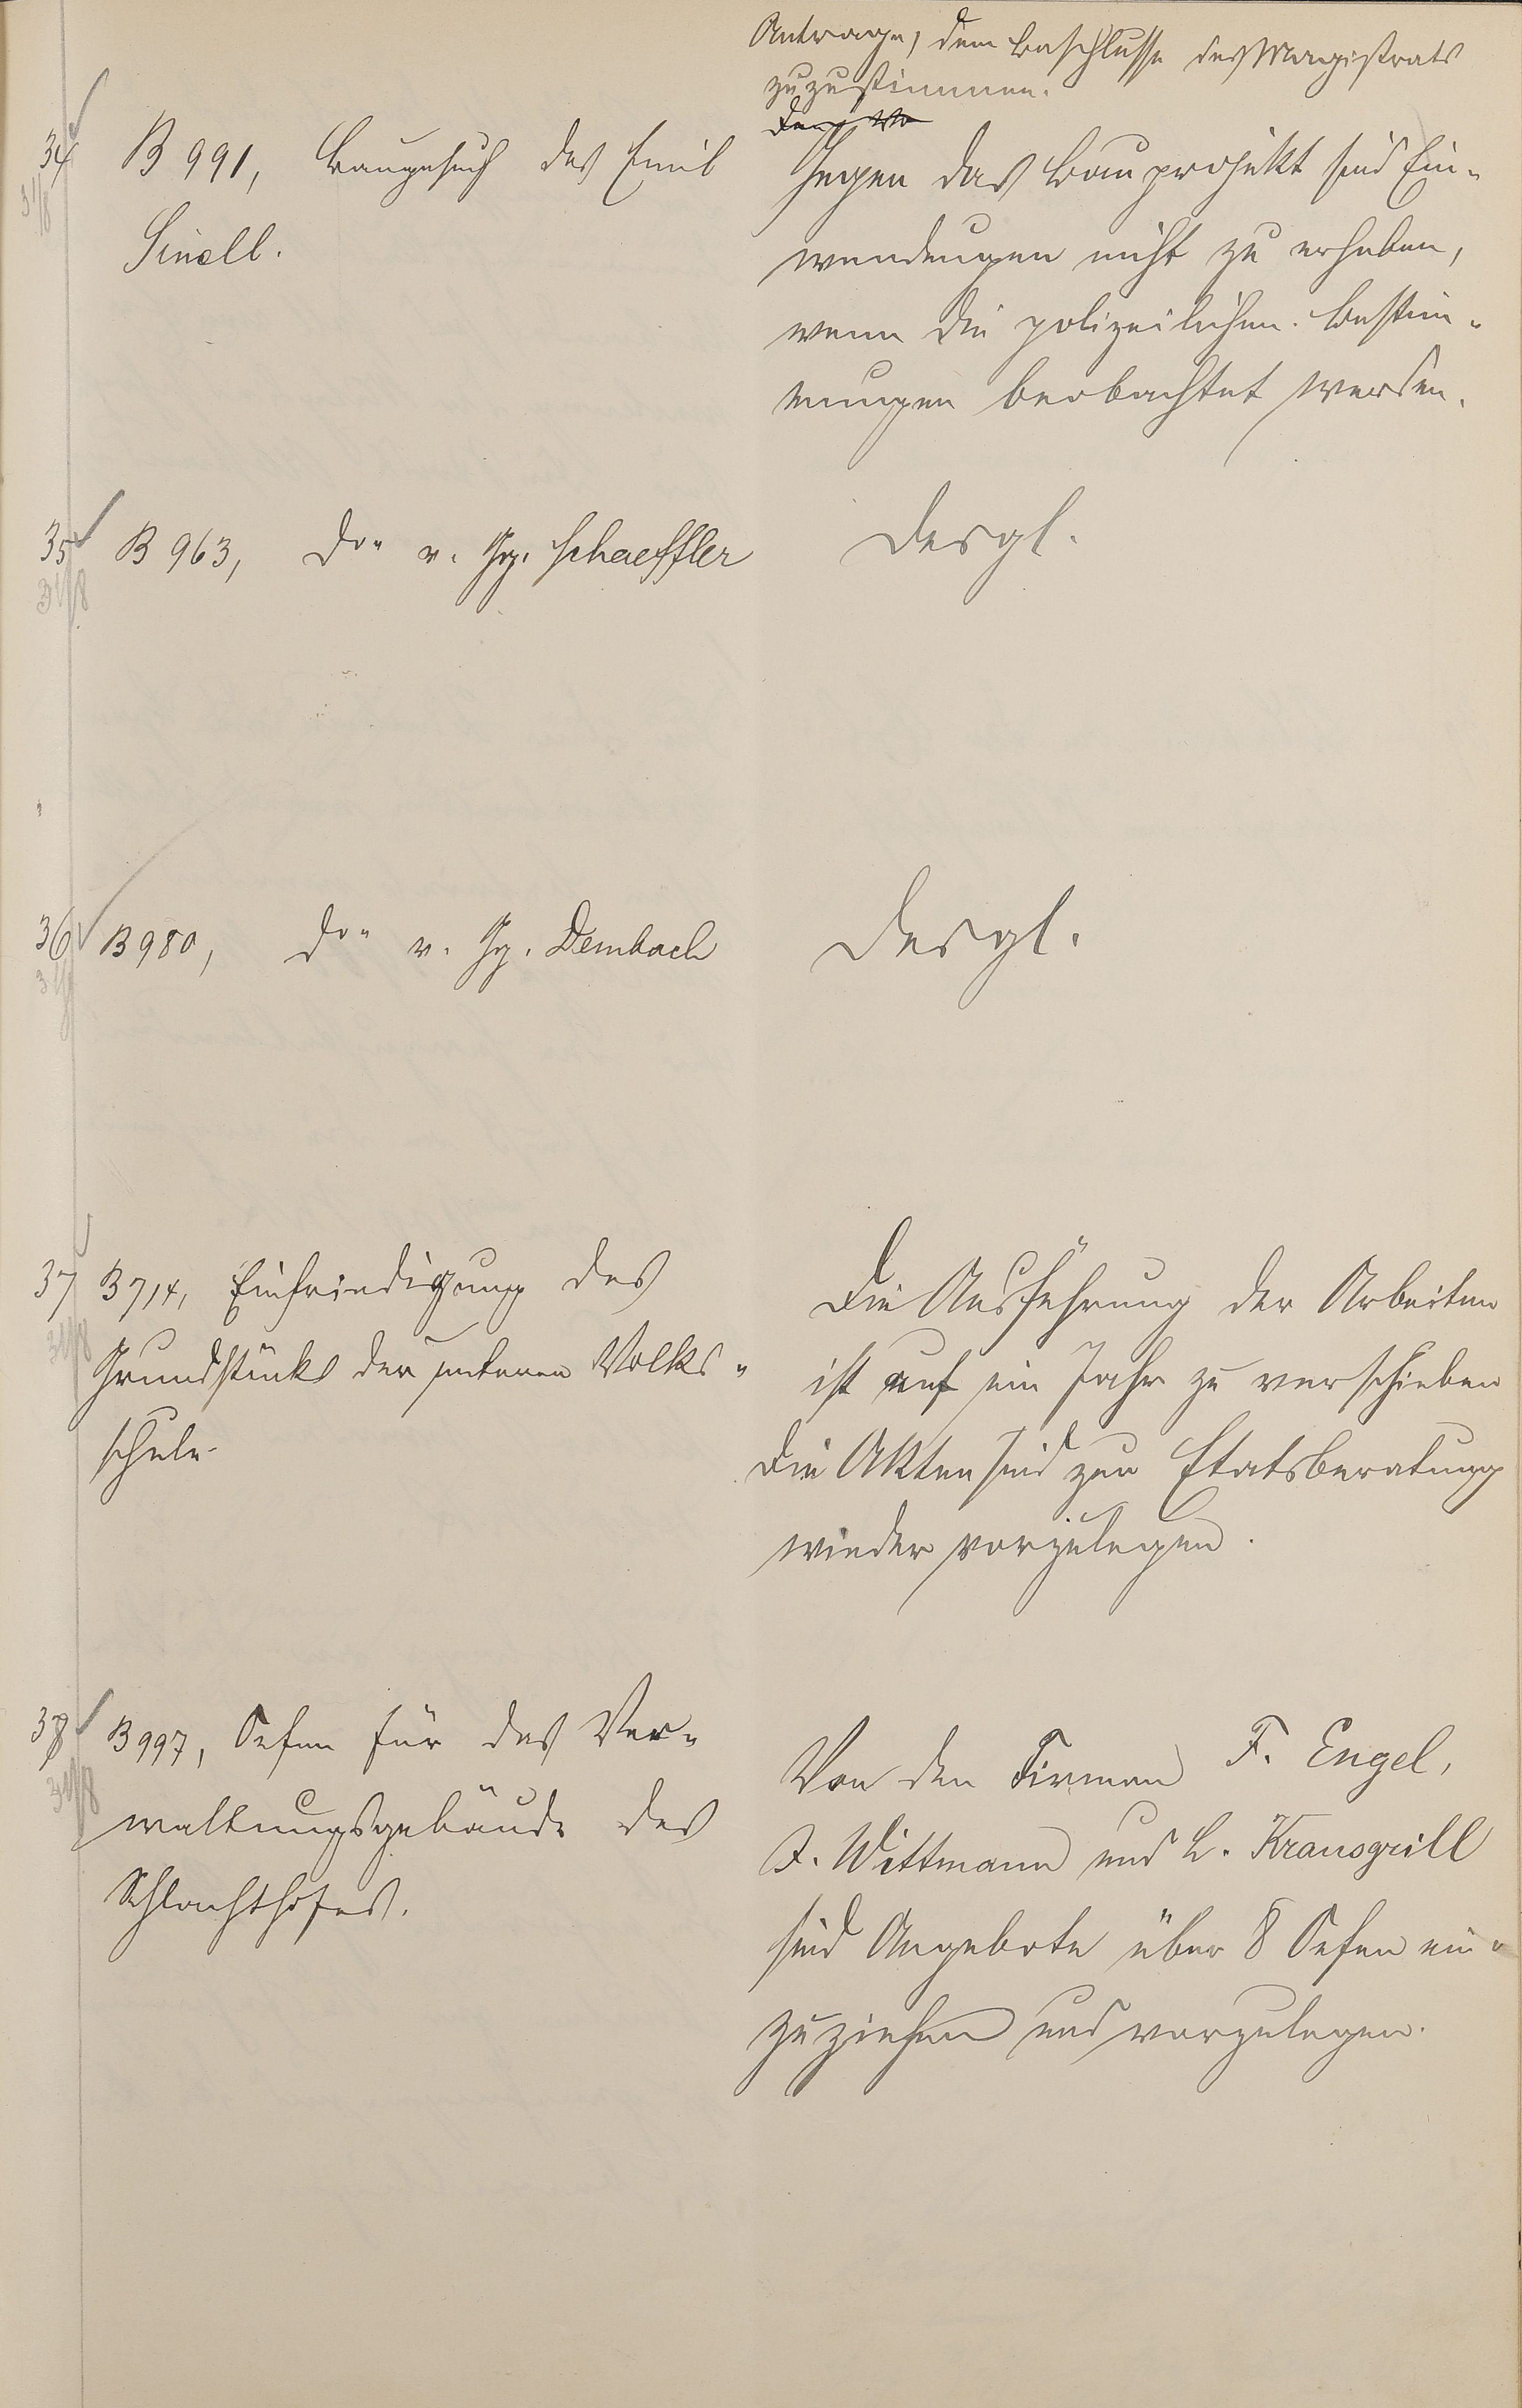 Antrage, dem Beschlusse des Magistrats
zuzustimmen.
34 B 991, Baugesuch des Emil
31/8
Sinell.
Gegen das Bauprojekt sind Ein-
wendungen nicht zu erheben,
wenn die polizeilichen Bestim-
mungen beobachtet werden.
35 B 963, do" v. Gg. Schaeffler
31/8
desgl.
36 B 980, do" v. Gg. Dembach
31/8
desgl.
37 B 714, Einfriedigung des
31/8
Grundstücks der unteren Volks-
schule
Die Ausführung der Arbeiten
ist auf ein Jahr zu verschieben
Die Akten sind zur Etatsberatung
wieder vorzulegen.
38 B 997, Oefen für das Ver-
31/8
waltungsgebäude des
Schlachthofes.
Von den Firmen F. Engel,
J. Wittmann und L. Krausgrill
sind Angebote über 8 Oefen ein-
zuziehen und vorzulegen.